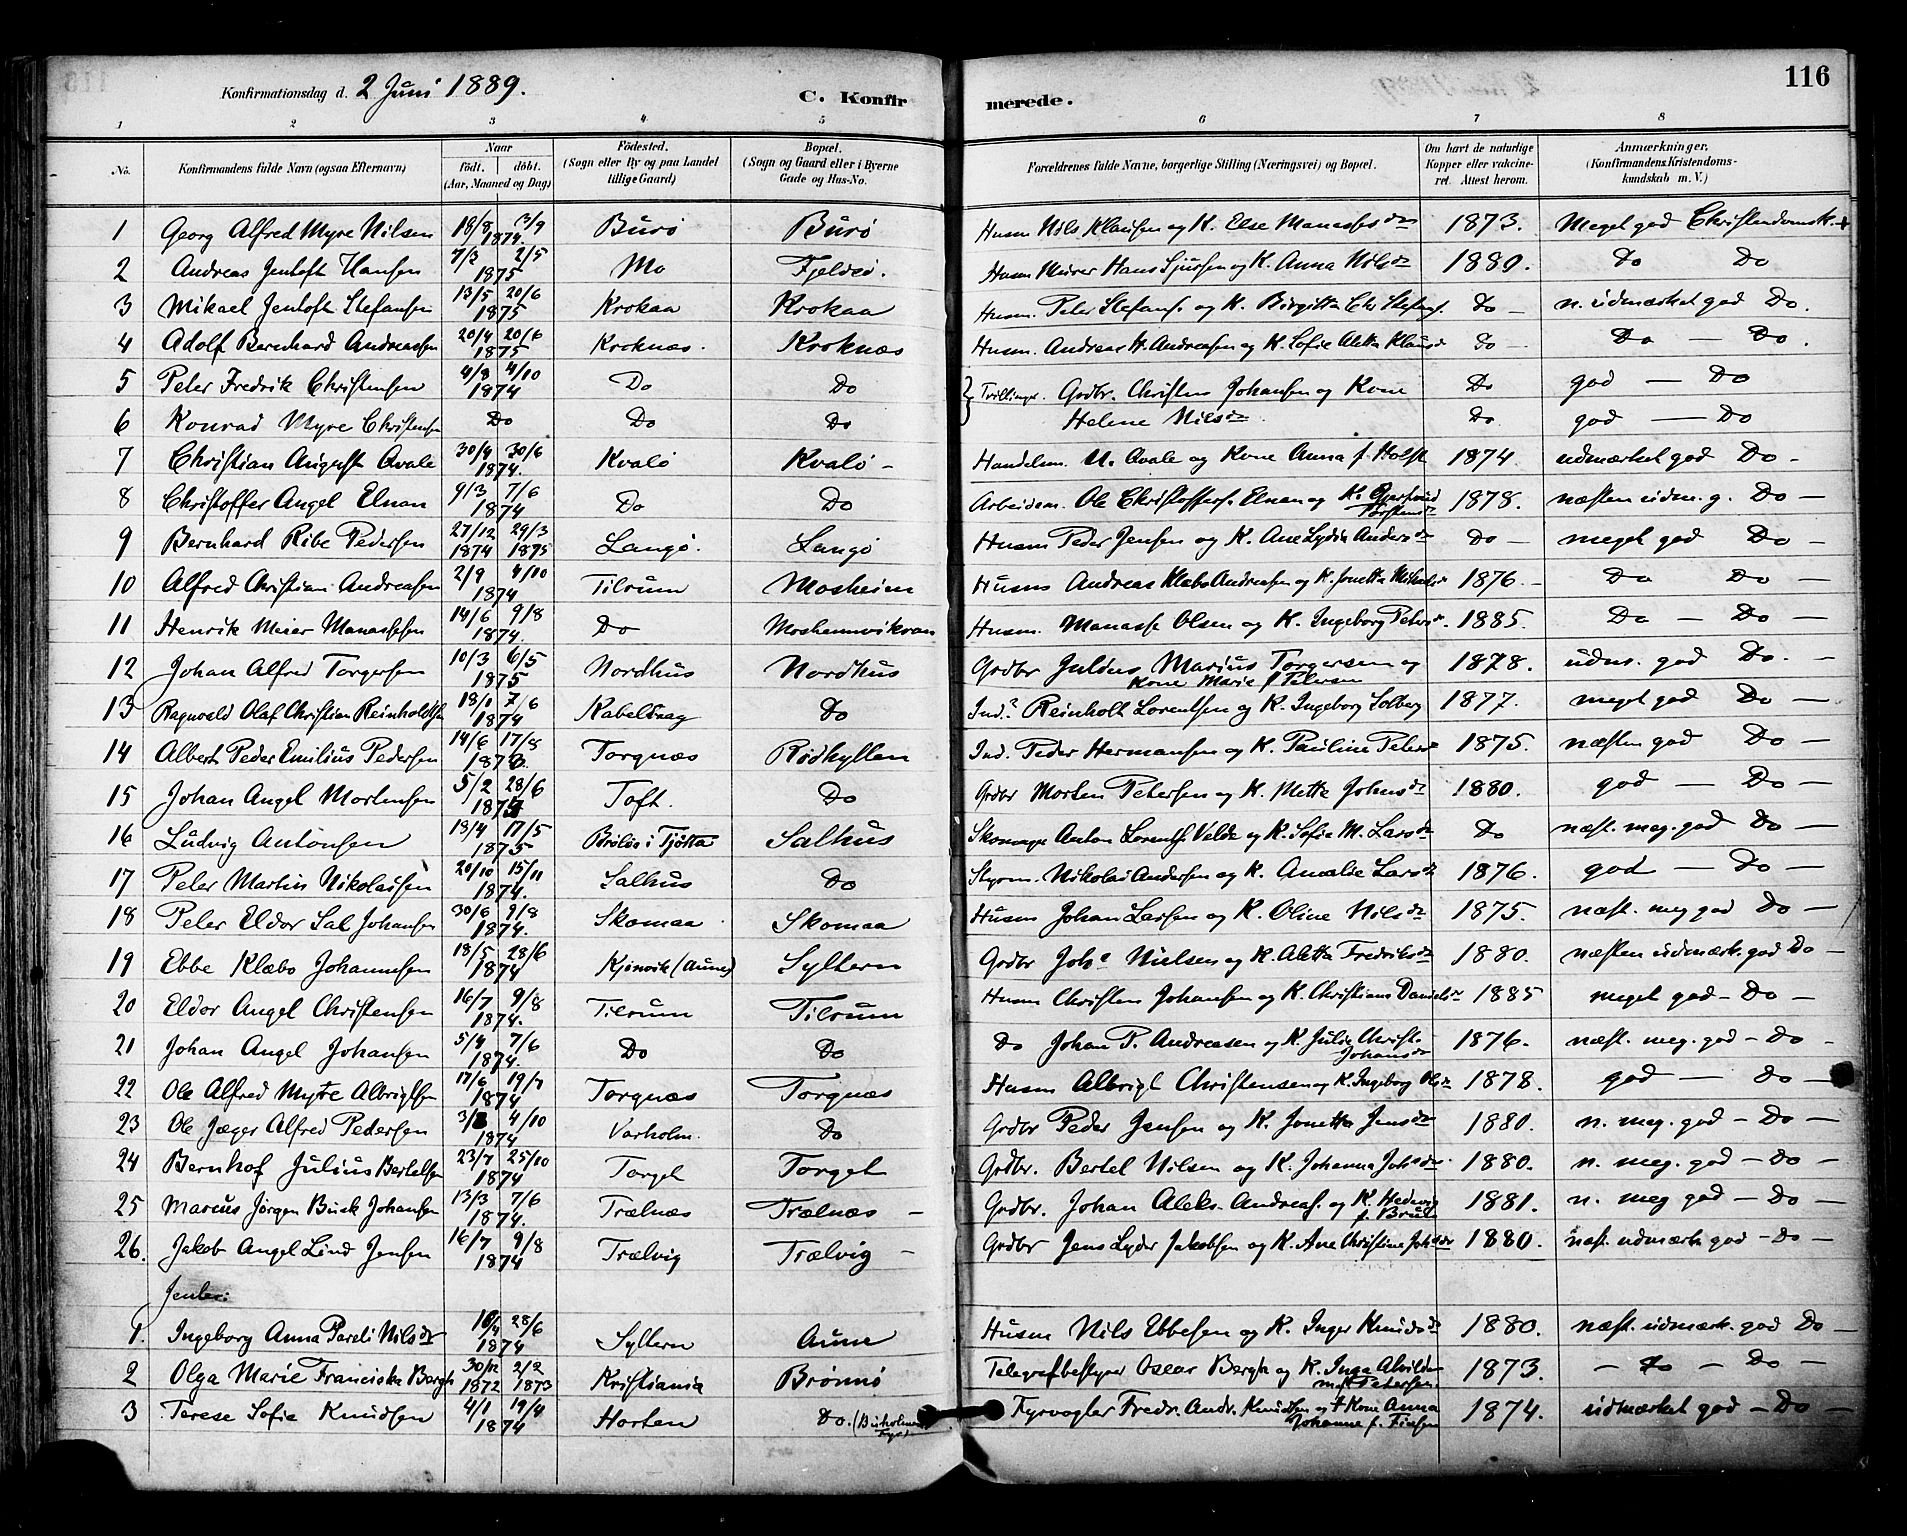 116
Konfirmationsdag d. 2 Juni 1889.
C. Konfirmerede.
1 2 3 4 5 6 7 8
No. Konfirmandens fulde Navn (ogsaa Efternavn) Naar født. døbt. (Aar, Maaned og Dag) Fødested. (Sogn eller By og paa Landet tillige Gaard) Bopæl. (Sogn og Gaard eller i Byerne Gade og Hus-No. Forældrenes fulde Navne, borgerlige Stilling (Næringsvei) og Bopæl. Om havt de naturlige Kopper eller vaccineret. Attest herom. Anmærkninger, (Konfirmandens Kristendomskundskab m. V.)
1 Georg Alfred Myre Nilsen 18/8 3/9 1874. Burø Burø Husm Nils Klausen og K. Else Manasses dr 1873. Meget god Christendomsk.
2 Andreas Jentoft Hansen 7/3 2/5 1875 Mo Fjeldsø. Husm Hans Sjursen og K. Anna Nilsdr 1880. Do Do
3 Mikael Jentoft Stefansen 13/5 20/6 1875 Krokaa Krokaa Husm. Peter Stefans. og K. Birgitta Do n. udmærket god Do.
4 Adolf Bernhard Andreassen 20/4 20/6 1875 Kroknæs. Kroknæs Husm. Andreas H. Andreassen og K. Sofie Aletta Klausd Do Do Do.
5 Peter Fredrik Christensen 4/8 4/10 1874 Do Do Tvillinger. Grdbr. Christen Johansen og Kone Do god Do
6 Konrad Myre Christensen Do Do Do Helene Nilsdr. Do. god Do
7 Christian August Qvale 30/4 30/6 1874. Kvalø Kvalø Handelsm. N. Qvale og Kone Anna f. Holst 1874. udmærket god Do
8 Christoffer Angel Elnan 9/3 7/6 1874 Do Do Arbeidsm. Ole Christoffers. Elnan og K. 1878. næsten udm. g. Do
9 Bernhard Ribe Pedersen 27/12 1874 29/3 1875 Langø. Langø Husm Peder Jensen og K. Ane Lydia Andersdr Do meget god Do
10 Alfred Christian Andreassen 2/9 4/10 1874 Tilrum Mosheim Husm Andreas Klæbo Andreassen og K. Jonetta 1876. Do Do
11 Henrik Meier Manassesen 14/6 9/8 1874. Do Husm. Manasse Olsen og K. Ingeborg Petersdr. 1885. Do Do
12 Johan Alfred Torgersen 10/3 6/5 1875 Nordhus Nordhus Grdbr Julius Marius Torgersen og Kone Marie f Petersen 1878. udm. god Do.
13 Ragnvald Olaf Christian Reinholdtsen 18/1 7/6 1874 Kabelvaag Do Ind. Reinholt Lorentsen og K. Ingeborg Solberg 1877. meget god Do
14 Albert Peder Emilius Pedersen 14/6 17/8 1873. Torgnæs Rødhyllen Ind. Peder Hermansen og K. Pauline Petersdr 1875. næsten god Do
15 Johan Angel Mortensen 5/2 28/6 Toft. Do Grdbr Morten Petersen og K. Mette Johnsdr 1880. god Do
16 Ludvig Antonsen 13/4 17/5 1875 i Tjøtta Salhus Skomager Anton Lorents. Velde og K. Sofie M. Larsdr Do næst. meg. god Do
17 Peter Martin Nikolaisen 20/10 15/11 1874. Salhus Do Nikolai Andersen og K. Amalie Larsdr 1876. god Do
18 Peter Eldor Sal Johansen 30/6 9/8 1874. Skomaa Skomaa Husm Johan Larsen og K. Oline Nilsdr 1875. næst. meg god Do
19 Ebbe Klæbo Johannesen 18/5 28/6 1874 Kjønvik (Aune) Syltern Grdbr Johs Nielsen og K. Aletta Fredriksdr 1880. næsten udmærk. god Do
20 Eldor Angel Christensen 16/7 9/8 1874. Tilrum Tilrum Husm Christen Johansen og K. Christiane Danielsdr 1885 meget god Do
21 Johan Angel Johansen 5/4 7/6 1874. Do Do Do Johan P. Andreasen og K. Julie Christ. Johansdr 1876. næst. meg. god Do
22 Ole Alfred Myre Albrigtsen 17/6 19/7 1874 Torgnæs Torgnæs Husm Albrigt Christensen og K. Ingeborg Olsdr 1878. god Do
23 Ole Jæger Alfred Pedersen 3/8 4/10 1874 Varholm. Do Grdbr Peder Jensen og K. Jonetta Jensdr 1880. n. meg. god Do
24 Bernhof Julius Bertelsen 23/7 25/10 1874 Torget Torget Grdbr. Bertel Nilsen og K. Johanna Johsdr 1880. n. meg. god Do
25 Marcus Jørgen Busk Johansen 13/3 7/6 1874. Trælnæs Trælnæs Grdbr. Johan Aleks. Andreas. og K. Hedevig f. 1881. n. meg god Do
26. Jakob Angel Lind Jensen 16/7 9/8 1874 Trælvig Trælvig Grdbr Jens Lyder Jakobsen og K. Ane Christine Johsdr 1880. næst. udmærk. god Do
Jenter:
1. Ingeborg Anna Pareli Nilsdr 28/6 1874 Syltern Aune Husm Nils Ebbesen og K. Inger Knudsdr 1880. næst. udmærk. god Do
2 Olga Marie Franciska Bergh 30/12 1872 2/2 1873 Kristiania Brønnø Telegrafbestyrer Oscar Bergh og K. Inga Alvilde Petersen. 1873. Do Do
3 Terese Sofie Knudsen 4/1 19/4 1874 Horten Do. Fyrvogter Fredr. Andr. Knudsen og † Kone Anna Johanne f. 1874. udmærket god Do